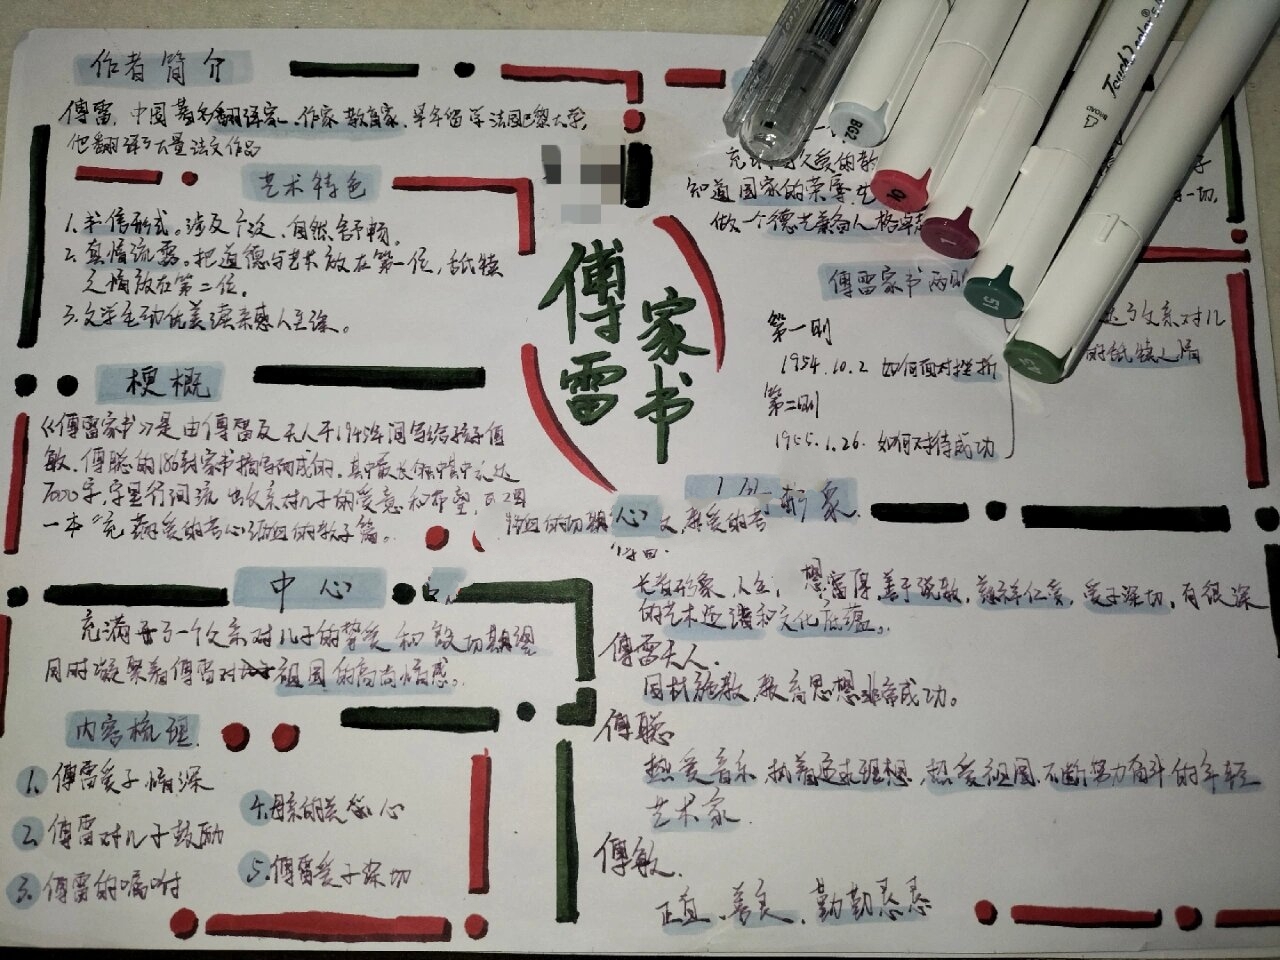 作者简介
傅雷，中国著名翻译家、作家、教育家，早年留学法国巴黎大学，
他翻译了大量法文作品
艺术特色
1.书信形式。涉及广泛、自然舒畅。
2.真情流露。把道德与艺术放在第一位，舐犊
之情放在第二位。
3.文学生动优美读来感人至深。
梗概
《傅雷家书》是由傅雷及夫人于19
敏、傅聪的186封家书摘编而成的，其中最长的
7000字，字里行间流 父亲对儿子的爱意和希望，
一本“充 爱的苦心 的教子篇。
中心
充满 了一个父亲对儿子的挚爱和殷切期望
同时凝聚着傅雷对 祖国的高尚情感。
内容梳理
1.傅雷爱子情深
2.傅雷对儿子鼓励
3.傅雷的嘱咐
4.母亲的关爱 心
5.傅雷爱子深切
傅雷
家书
一
充 爱的教
知道国家的荣辱， 一切，
做一个德艺兼备人格卓
傅雷家书两则
第一则
1954.10.2 如何面对挫折
第二则
1955.1.26. 如何对待成功
了父亲对儿
的舐犊之情
形象
心
长者形象， 善于说教，慈祥仁爱，爱子深切，有很深
的艺术造诣和文化底蕴。
傅雷夫人.
因材施教，教育思想非常成功。
傅聪
热爱音乐，执着追求理想，热爱祖国，不断努力奋斗的年轻
艺术家.
傅敏.
正直、善良、勤勤恳恳
BG2
1
15
Touch
Color